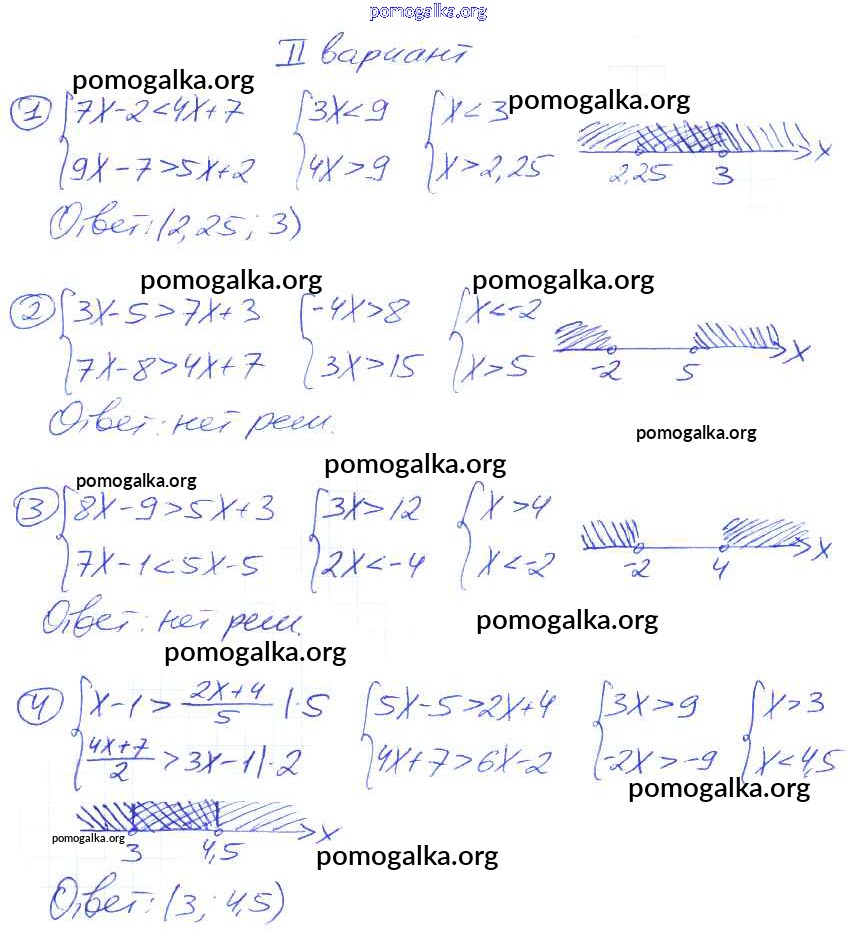 pomogalka.org
II вариант
pomogalka.org
pomogalka.org
1 { 7x-2<4x+7 { 3x<9 { x<3
9x-7>5x+2 4x>9 x>2,25
2,25 3 x
Ответ: (2,25; 3)
pomogalka.org pomogalka.org
2 { 3x-5>7x+3 { -4x>8 { x<-2
7x-8>4x+7 3x>15 x>5
-2 5 x
Ответ: нет реш.
pomogalka.org
pomogalka.org
pomogalka.org
3 { 8x-9>5x+3 { 3x>12 { x>4
7x-1<5x-5 2x<-4 x<-2
-2 4 x
Ответ: нет реш.
pomogalka.org
pomogalka.org
4 { x-1> (2x+4)/5 |·5 { 5x-5>2x+4 { 3x>9 { x>3
(4x+7)/2 >3x-1|·2 4x+7>6x-2 -2x>-9 x<4,5
pomogalka.org
pomogalka.org
3 4,5 x
pomogalka.org
Ответ: (3; 4,5)